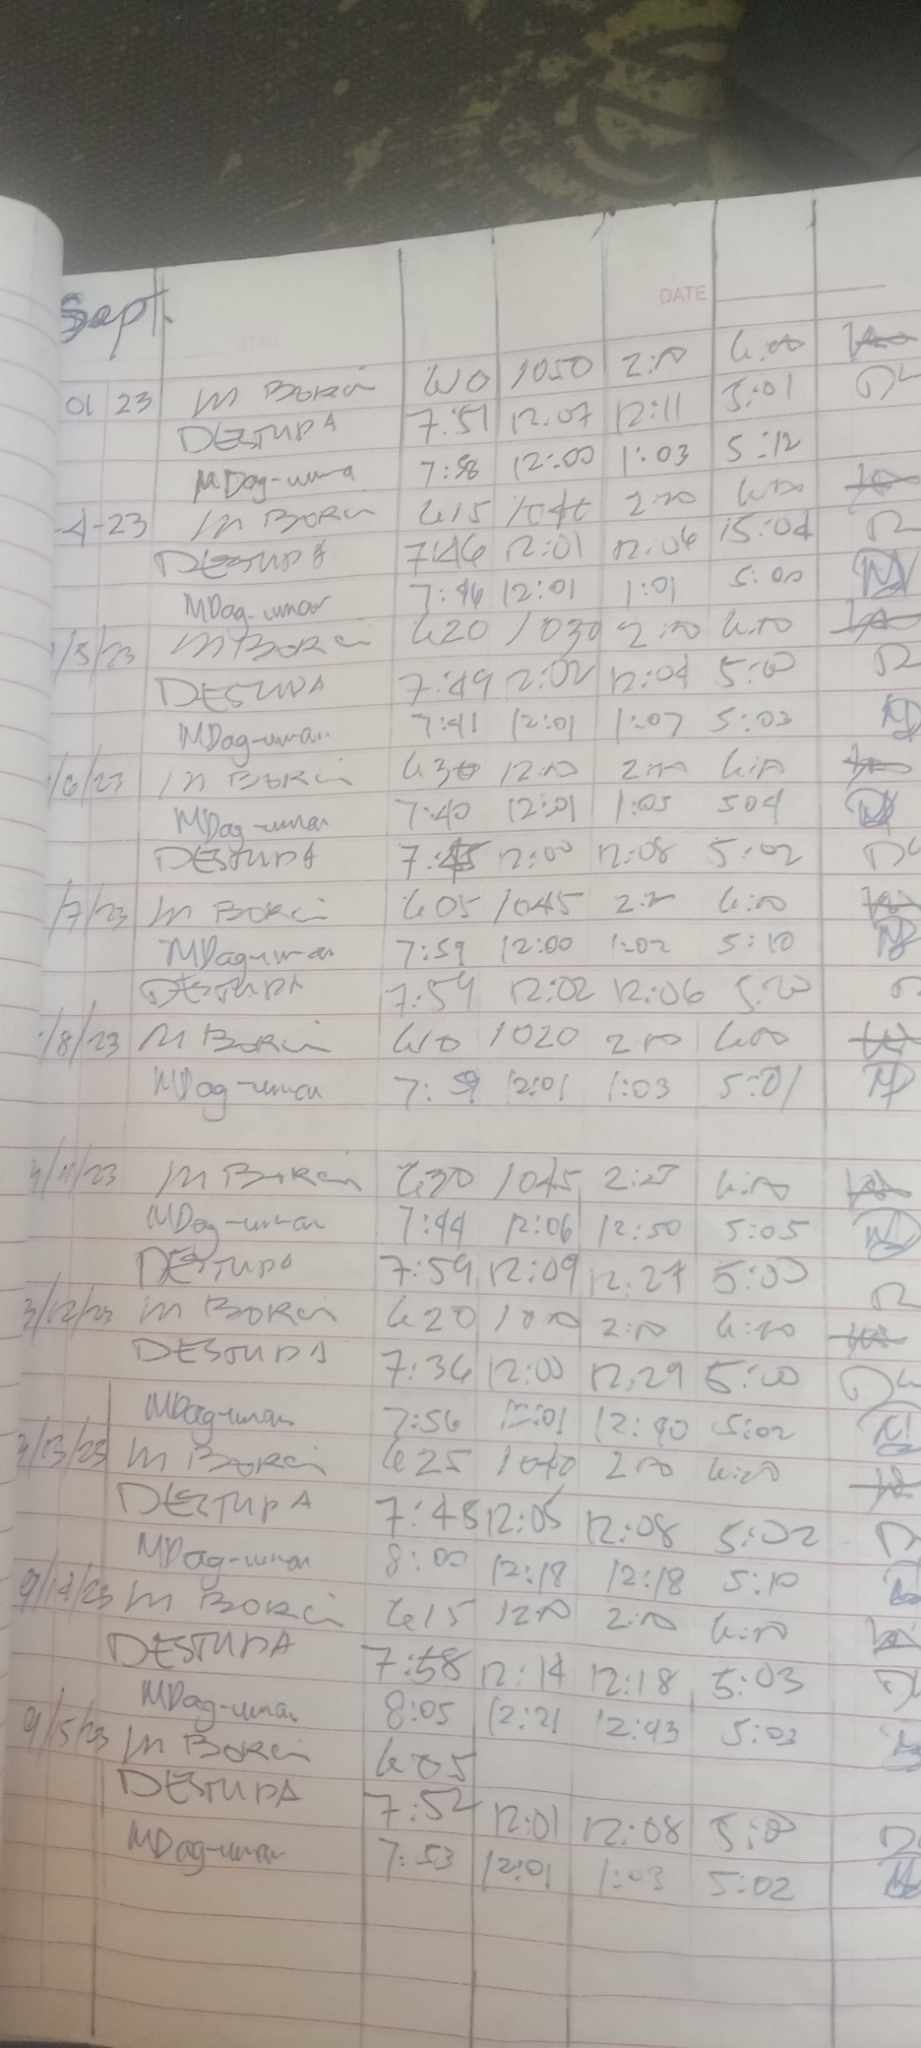 Sept.
DATE
01 23 M Borci 610 1050 2:00 6:00
DESTUPA 7:51 12:07 12:11 5:01
MDag-uman 7:58 12:00 1:03 5:12
-4-23 M Borci 615 1040 2:00 6:00
DESTUPA 7:46 12:01 12:06 15:04
MDag-uman 7:46 12:01 1:01 5:00
/5/23 M Borci 620 1030 2:00 6:00
DESTUPA 7:49 12:02 12:04 5:00
MDag-uman 7:41 12:01 1:07 5:03
/6/23 M Borci 630 12:00 2:00 6:00
MDag-uman 7:40 12:01 1:05 504
DESTUPA 7:45 12:00 12:08 5:02
/7/23 M Borci 605 1045 2:00 6:00
MDag-uman 7:59 12:00 1:02 5:10
DESTUPA 7:59 12:02 12:06 5:00
/8/23 M Borci 610 1020 200 600
MDag-uman 7:59 12:01 1:03 5:01
/11/23 M Borci 630 1045 6:00
MDag-uman 7:44 12:06 12:50 5:05
DESTUPA 7:59 12:09 12:27 5:00
/12/23 M Borci 620 2:00 6:00
DESTUPA 7:36 12:00 12:29 5:00
MDag-uman 7:56 12:01 12:40 5:02
/13/23 M Borci 625 1040 200 6:00
DESTUPA 7:48 12:05 12:08 5:02
MDag-uman 8:00 12:18 12:18 5:10
9/14/23 M Borci 615 1200 2:00 6:00
DESTUPA 7:58 12:14 12:18 5:03
MDag-uman 8:05 12:21 12:43 5:03
9/15/23 M Borci 605
DESTUPA 7:52 12:01 12:08 5:00
MDag-uman 7:53 12:01 1:03 5:02